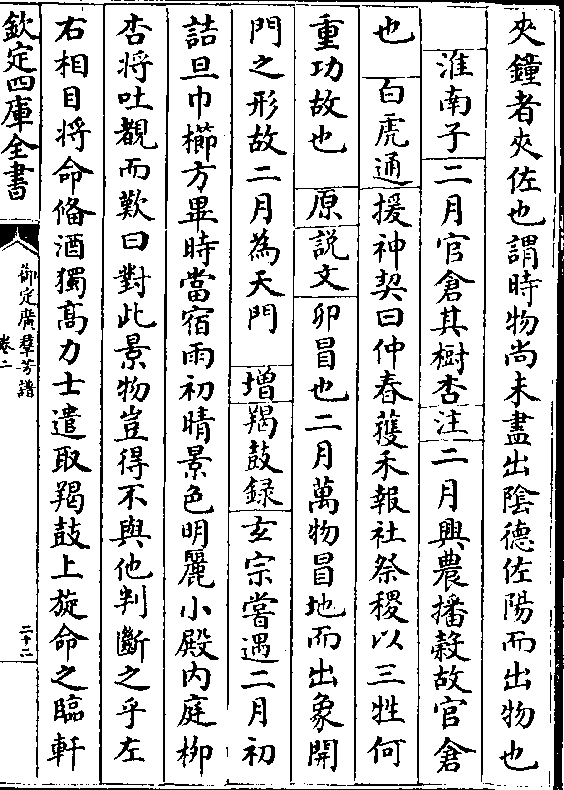 夾鐘者夾佐也謂時物尚未盡出陰德佐陽而出物也
淮南子二月官倉其樹杏注二月興農播榖故官倉
也 白虎通援神契曰仲春獲禾報社祭稷以三牲何
重功故也 原說文卯冒也二月萬物冒地而出象開
門之形故二月為天門 增羯鼓録玄宗嘗遇二月初
詰旦巾櫛方畢時當宿雨初晴景色明麗小殿内庭栁
杏將吐覩而歎曰對此景物豈得不與他判斷之乎左
右相目將命偹酒獨高力士遣取羯鼓上旋命之臨軒
欽定四庫全書
御定廣羣芳譜
卷二
二十二